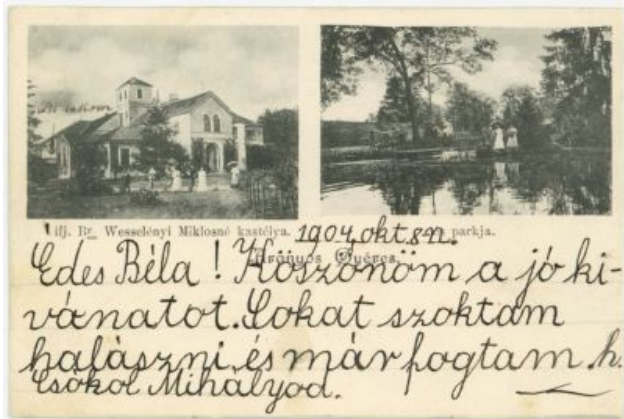 ifj. Br. Wesselényi Miklosné kastélya. 1904 okt 8n. parkja.
Aranyos Gyéres.
Édes Béla! Köszönöm a jó ki-
vánatot. Sokat szoktam
halászni, és már fogtam. h.
Csókol Mihályod.